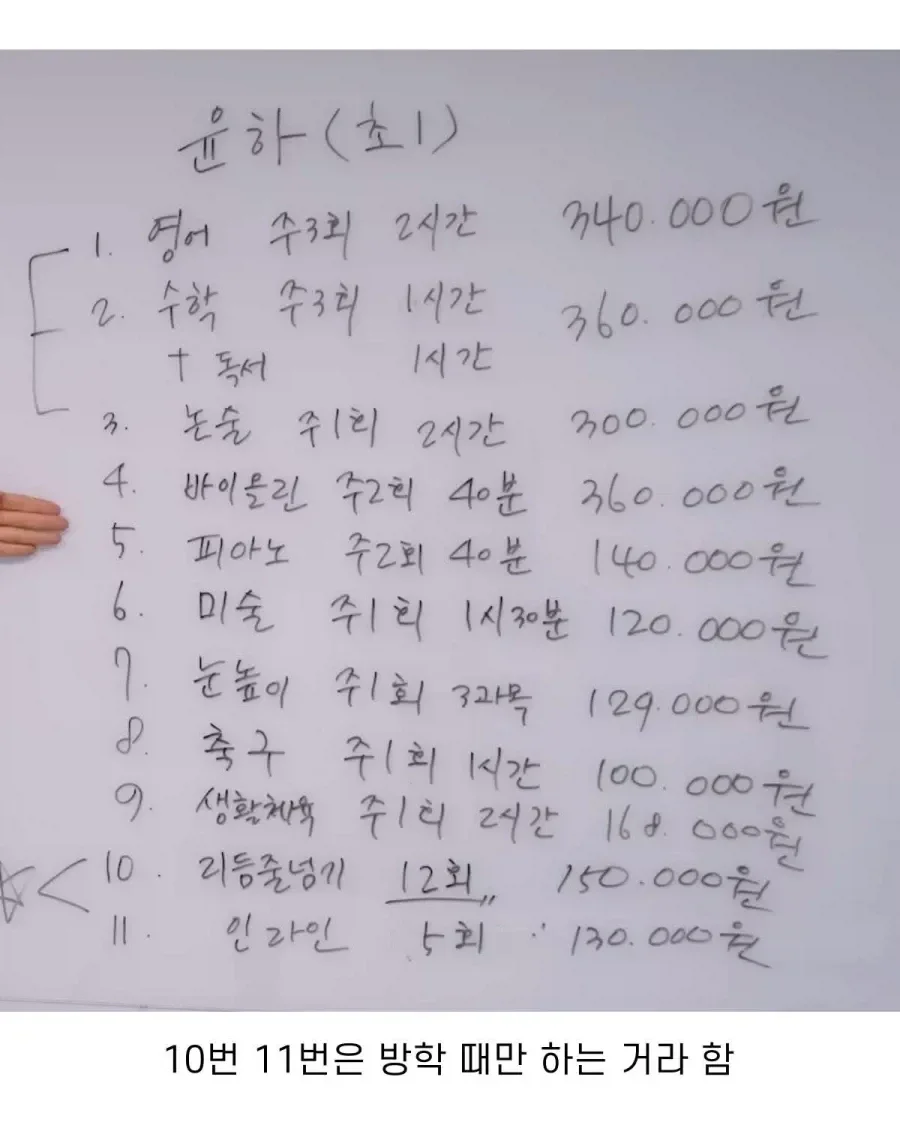 윤하(초1)
1. 영어 주3회 2시간 340.000원
2. 수학 주3회 1시간 360.000원
+ 독서 1시간
3. 논술 주1회 2시간 300.000원
4. 바이올린 주2회 40분 360.000원
5. 피아노 주2회 40분 140.000원
6. 미술 주1회 1시30분 120.000원
7. 눈높이 주1회 3과목 129.000원
8. 축구 주1회 1시간 100.000원
9. 생활체육 주1회 2시간 168.000원
10. 리듬줄넘기 12회 150.000원
11. 인라인 5회 130.000원
10번 11번은 방학 때만 하는 거라 함